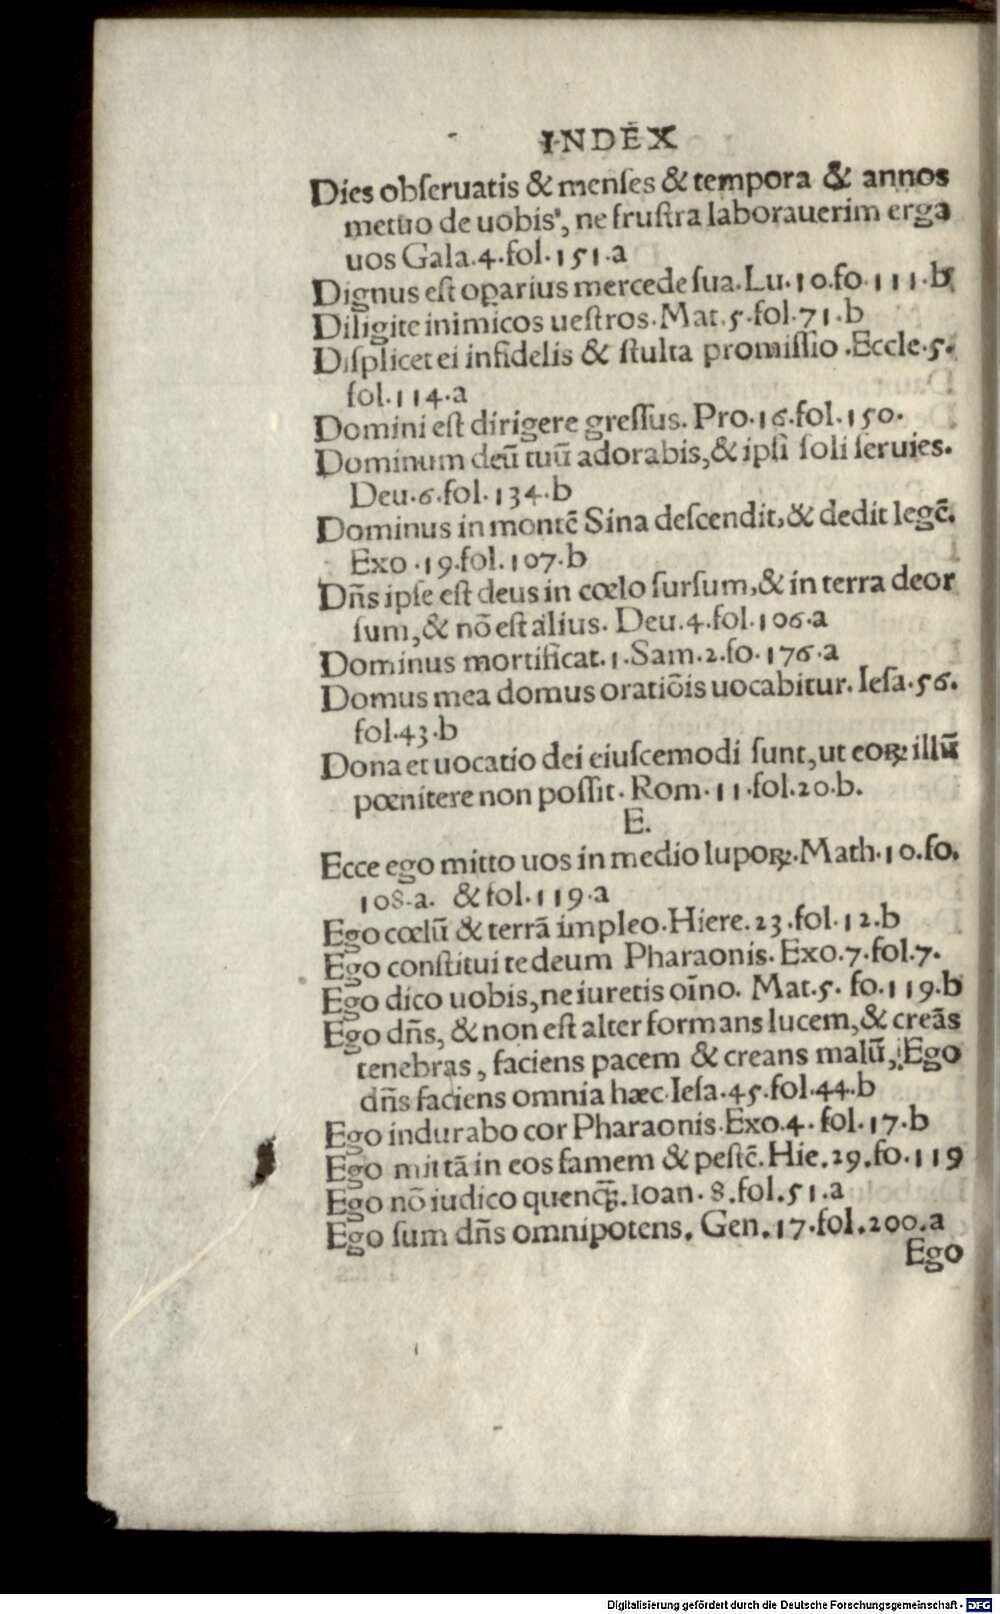 INDEX
Dies obſeruatis & menſes & tempora & annos
metuo de uobis, ne fruſtra laborauerim erga
uos Gala.4.fol.151.a
Dignus eſt oparius mercede ſua.Lu.10.fo.111.b
Diligite inimicos ueſtros.Mat.5.fol.71.b
Diſplicet ei infidelis & ſtulta promiſſio.Eccle.5.
fol.114.a
Domini eſt dirigere greſſus. Pro.16.fol.150.
Dominum deū tuū adorabis,& ipſi ſoli ſeruies.
Deu.6.fol.134.b
Dominus in montē Sina deſcendit,& dedit legē.
Exo.19.fol.107.b
Dñs ipſe eſt deus in cœlo ſurſum,& in terra deor
ſum,& nō eſt alius. Deu.4.fol.106.a
Dominus mortificat.1.Sam.2.fo.176.a
Domus mea domus oratiōis uocabitur. Ieſa.56.
fol.43.b
Dona et uocatio dei eiuſcemodi ſunt,ut eoꝝ illū
pœnitere non poſſit. Rom.11.fol.20.b.
E.
Ecce ego mitto uos in medio lupoꝝ.Math.10.fo.
108.a. & fol.119.a
Ego cœlū & terrā impleo.Hiere.23.fol.12.b
Ego conſtitui te deum Pharaonis. Exo.7.fol.7.
Ego dico uobis,ne iuretis oīno. Mat.5. fo.119.b
Ego dñs, & non eſt alter formans lucem,& creās
tenebras, faciens pacem & creans malū, Ego
dñs faciens omnia hæc.Ieſa.45.fol.44.b
Ego indurabo cor Pharaonis.Exo.4. fol.17.b
Ego mittā in eos famem & peſtē.Hie.29.fo.119
Ego nō iudico quenꝗ̃.Ioan.8.fol.51.a
Ego ſum dñs omnipotens. Gen.17.fol.200.a
Ego
Digitalisierung gefördert durch die Deutsche Forschungsgemeinschaft - DFG